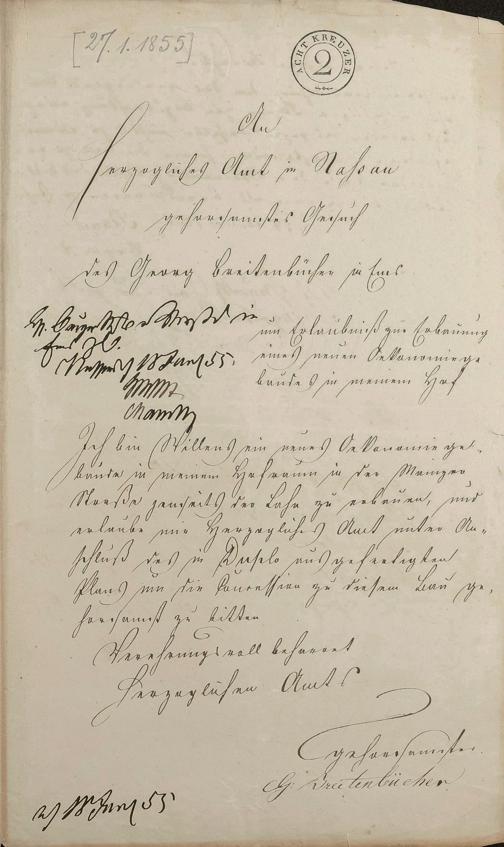 [27.1.1855]
ACHT KREUZER
2
An
Herzogliches Amt in Nassau
gehorsamstes Gesuch
des Georg Breitenbücher in Ems
um Erlaubniß zur Erbauung
eines neuen Oekonomiege
baudes in meinem Hof
18 55.
Ich bin Willens ein neues Oekonomiege-
baude in meinem Hofraum in der Mainzer
Straße jenseits der Lahn zu erbauen, und
erlaube mir Herzogliches Amt unter An-
schluß des in Duplo ausgefertigten
Plans um die Concession zu diesem Bau ge-
horsamst zu bitten
Verehrungsvoll beharret
Herzoglichen Amts
gehorsamster
Gg Breitenbücher
18 55